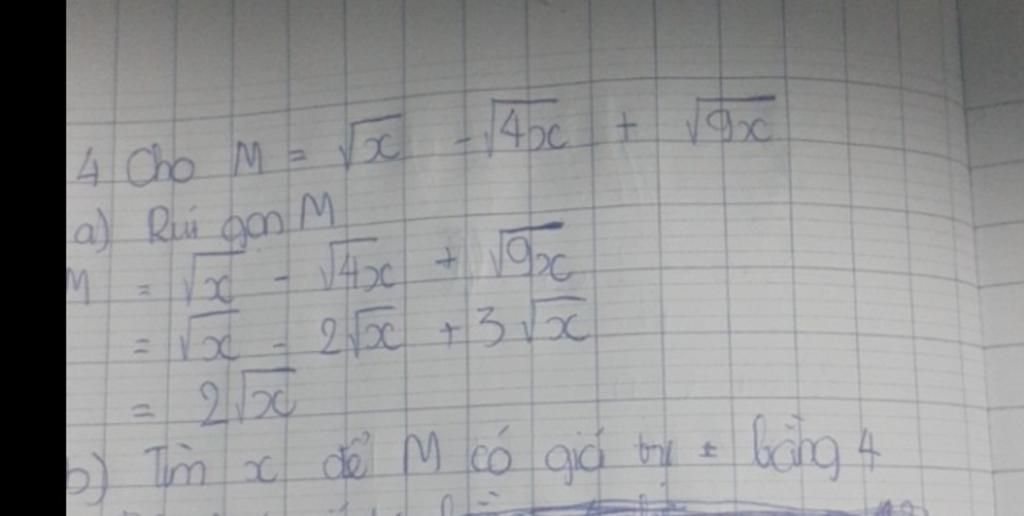 4 Cho M = √x - √4x + √9x
a) Rúi gọn M
M = √x - √4x + √9x
= √x - 2√x + 3√x
= 2√x
b) Tìm x để M có giá trị = bằng 4